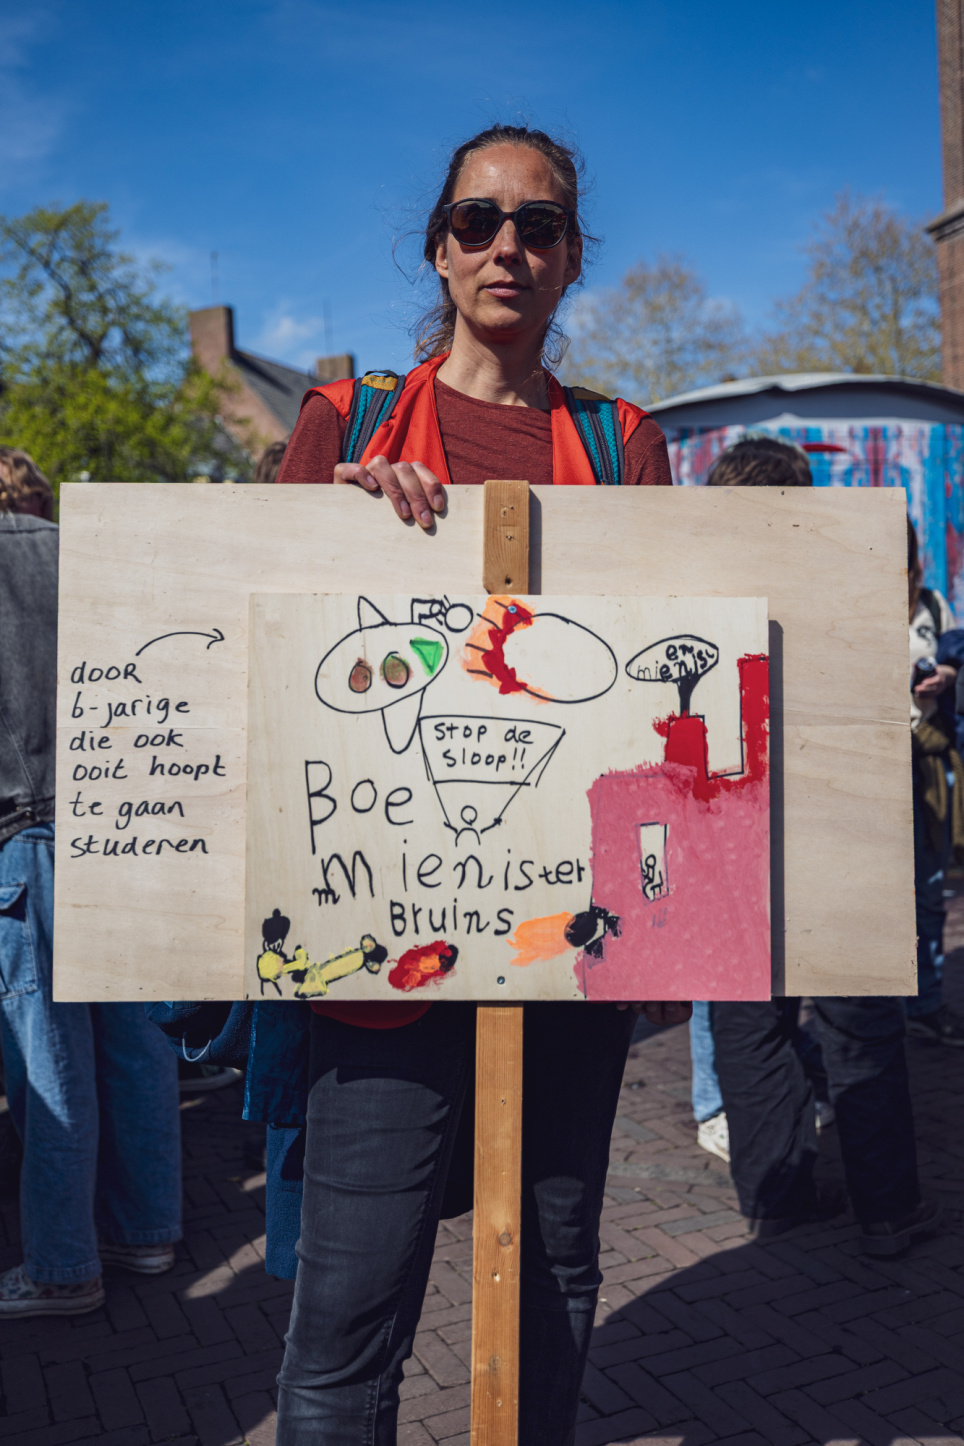 door
6-jarige
die ook
ooit hoopt
te gaan
studeren
en
mienisv
Stop de
Sloop!!
Boe
mienister
Bruins